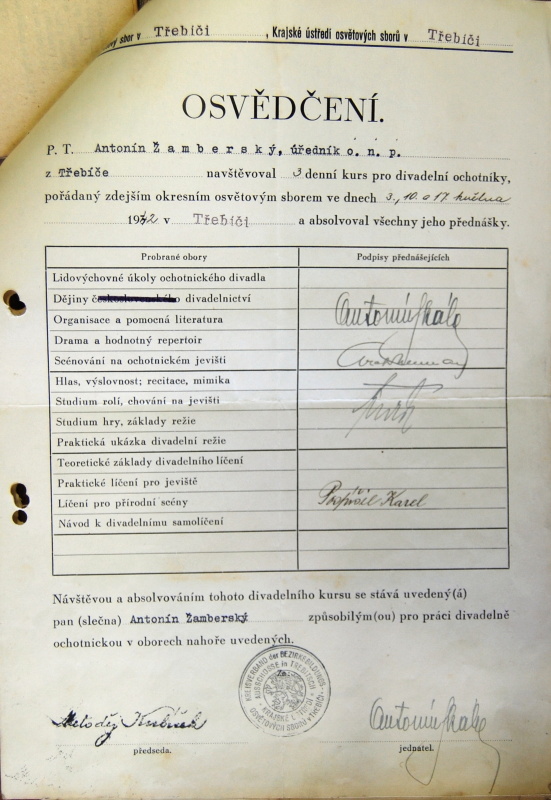 sbor v Třebíči , Krajské ústředí osvětových sborů v Třebíči
OSVĚDČENÍ.
P. T. Antonín Žamberský, úředník o. n. p.
z Třebíče navštěvoval 3 denní kurs pro divadelní ochotníky,
pořádaný zdejším okresním osvětovým sborem ve dnech 3., 10. a 17. května
1942 v Třebíči a absolvoval všechny jeho přednášky.
Probrané obory Podpisy přednášejících
Lidovýchovné úkoly ochotnického divadla
Dějiny československého divadelnictví
Organisace a pomocná literatura
Drama a hodnotný repertoir
Scénování na ochotnickém jevišti
Hlas, výslovnost; recitace, mimika
Studium rolí, chování na jevišti
Studium hry, základy režie
Praktická ukázka divadelní režie
Teoretické základy divadelního líčení
Praktické líčení pro jeviště
Líčení pro přírodní scény Pospíšil Karel
Návod k divadelnímu samolíčení
Návštěvou a absolvováním tohoto divadelního kursu se stává uvedený(á)
pan (slečna) Antonín Žamberský způsobilým(ou) pro práci divadelně
ochotnickou v oborech nahoře uvedených.
KREISVERBAND der BEZIRKS-BILDUNGS-
AUSSCHÜSSE in TREBITSCH
OSVĚTOVÝCH SBORŮ
Metoděj Antonín
předseda. jednatel.